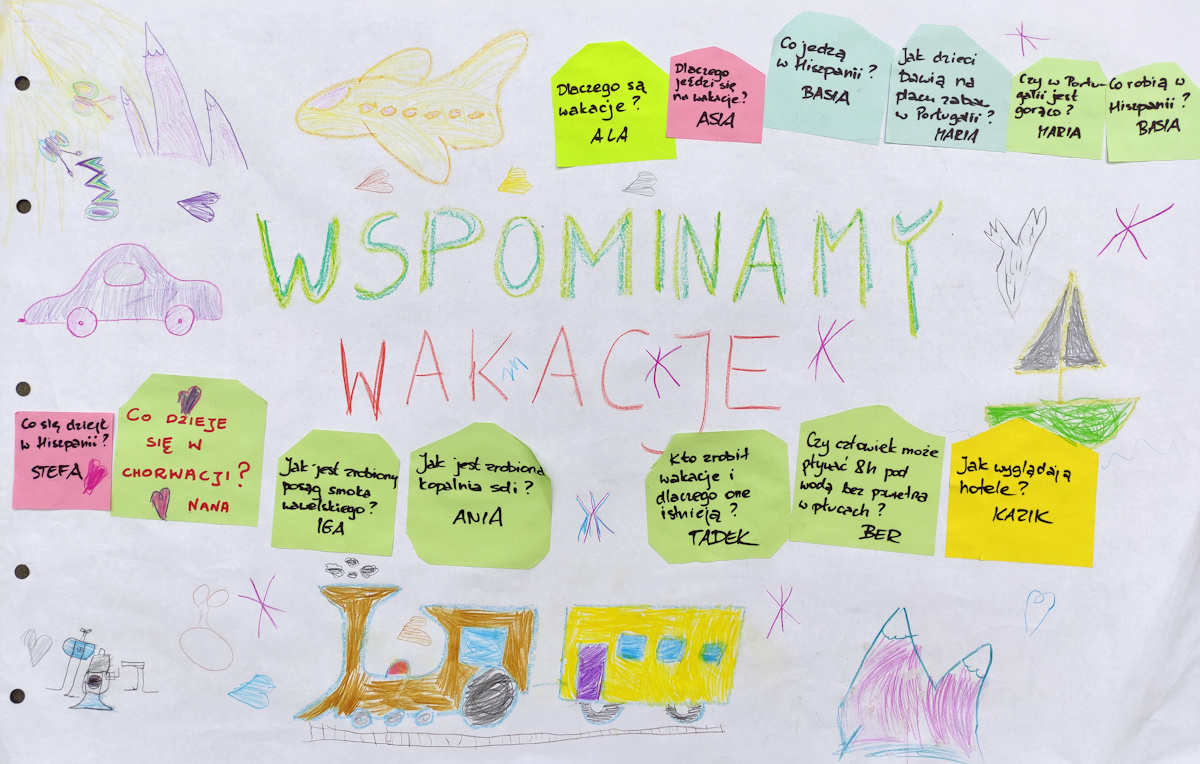 Dlaczego są
wakacje?
ALA
Dlaczego
jeździ się
na wakacje?
ASIA
Co jedzą
w Hiszpanii?
BASIA
Jak dzieci
bawią na
placu zabaw
w Portugalii?
MARIA
Czy w Portu-
galii jest
gorąco?
MARIA
Co robią w
Hiszpanii?
BASIA
WSPOMINAMY
WAKACJE
Co się dzieje
w Hiszpanii?
STEFA
CO DZIEJE
SIĘ W
CHORWACJI?
NANA
Jak jest zrobiony
posąg smoka
wawelskiego?
IGA
Jak jest zrobiona
kopalnia soli?
ANIA
Kto zrobił
wakacje i
dlaczego one
istnieją?
TADEK
Czy człowiek może
pływać 8h pod
wodą bez powietrza
w płucach?
BER
Jak wyglądają
hotele?
KAZIK